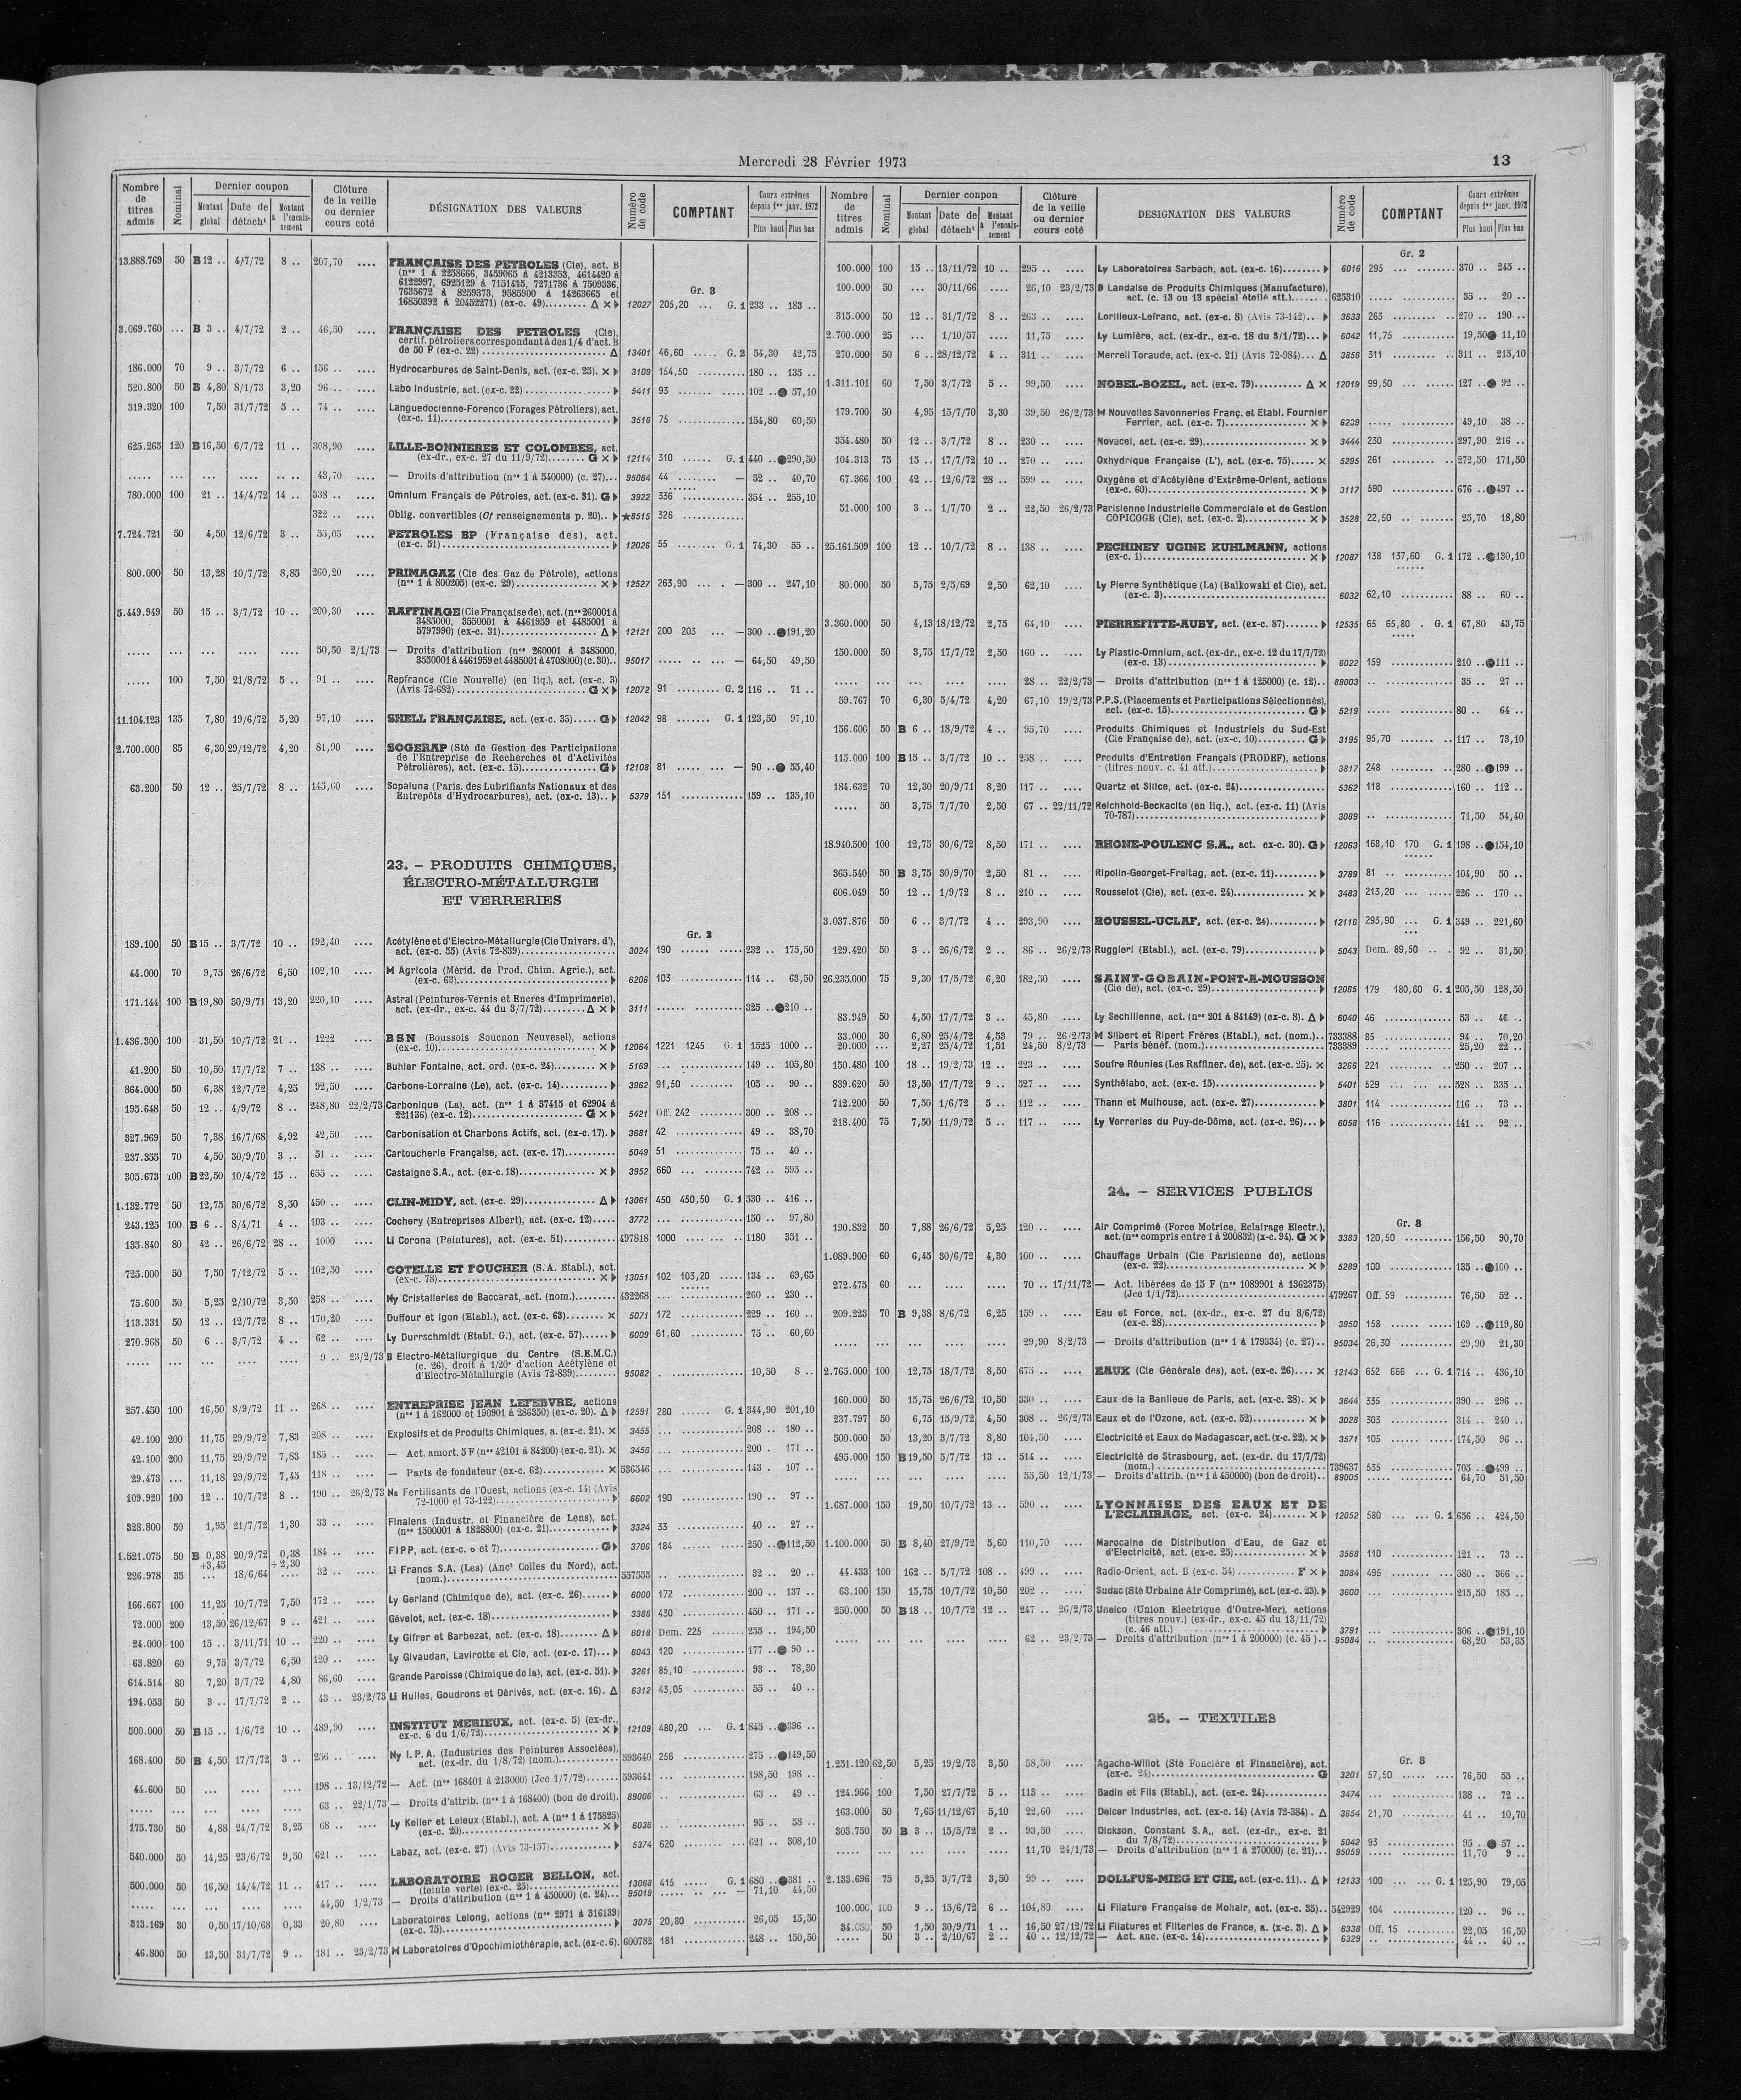 Mercredi 28 Février 1973
13
Nombre de titres admis | Nominal | Dernier coupon | Montant global | Date de détacht | Montant à l'encaissement | Clôture de la veille ou dernier cours coté | DÉSIGNATION DES VALEURS | Numéro de code | COMPTANT | Cours extrêmes depuis 1er janv. 1972 | Plus haut | Plus bas
13.888.769 50 B 12 .. 4/7/72 8 .. 207,70 .... FRANÇAISE DES PETROLES (Cie), act. B
(nos 1 à 2258666, 3459065 à 4213353, 4614420 à
6122997, 6925129 à 7151415, 7271736 à 7509336,
7635672 à 8259373, 9585900 à 14263665 et
16850392 à 20452271) (ex-c. 49) Δ × 12027 205,20 ... G. 1 233 .. 183 ..
Gr. 3
3.069.760 ... B 3 .. 4/7/72 2 .. 46,50 .... FRANÇAISE DES PETROLES (Cie),
certif. pétroliers correspondant à des 1/4 d'act. B
de 50 F (ex-c. 22) Δ 13401 46,60 ..... G. 2 54,30 42,75
186.000 70 9 .. 3/7/72 6 .. 156 .. .... Hydrocarbures de Saint-Denis, act. (ex-c. 25). × 3109 154,50 180 .. 135 ..
520.800 50 B 4,80 8/1/73 3,20 96 .... Labo Industrie, act. (ex-c. 22) 5411 93 102 .. ● 57,10
319.320 100 7,50 31/7/72 5 .. 74 .. .... Languedocienne-Forenco (Forages Pétroliers), act.
(ex-c. 11) 3516 75 154,80 60,50
625.265 120 B 16,50 6/7/72 11 .. 308,90 .... LILLE-BONNIERES ET COLOMBES, act.
(ex-dr., ex-c. 27 du 11/9/72) G × 12114 310 ...... G. 1 440 .. ●290,50
43,70 .... — Droits d'attribution (nos 1 à 540000) (c. 27) 95064 44 — 52 .. 40,70
780.000 100 21 .. 14/4/72 14 .. 338 .. .... Omnium Français de Pétroles, act. (ex-c. 31). G 3922 336 354 .. 255,10
322 .. .... Oblig. convertibles (Cf renseignements p. 20) ★8515 326
7.724.721 50 4,50 12/6/72 3 .. 55,05 .... PETROLES BP (Française des), act.
(ex-c. 51) 12026 55 G. 1 74,30 55 ..
800.000 50 13,28 10/7/72 8,85 260,20 .... PRIMAGAZ (Cie des Gaz de Pétrole), actions
(nos 1 à 800205) (ex-c. 29) × 12527 263,90 — 300 .. 247,10
5.449.949 50 15 .. 3/7/72 10 .. 200,30 .... RAFFINAGE (Cie Française de), act. (nos 260001 à
3485000, 3550001 à 4461959 et 4485001 à
5797990) (ex-c. 31) Δ 12121 200 203 ... — 300 .. ●191,20
50,50 2/1/73 — Droits d'attribution (nos 260001 à 3485000,
3550001 à 4461959 et 4485001 à 4708000) (c. 30) 95017 — 64,50 49,50
..... 100 7,50 21/8/72 5 .. 91 .. .... Repfrance (Cie Nouvelle) (en liq.), act. (ex-c. 3)
(Avis 72-682) G × 12072 91 G. 2 116 .. 71 ..
11.104.123 135 7,80 19/6/72 5,20 97,10 .... SHELL FRANÇAISE, act. (ex-c. 35) G 12042 98 G. 1 123,50 97,10
2.700.000 85 6,30 29/12/72 4,20 81,90 .... SOGERAP (Sté de Gestion des Participations
de l'Entreprise de Recherches et d'Activités
Pétrolières), act. (ex-c. 15) G 12108 81 — 90 .. ● 55,40
63.200 50 12 .. 25/7/72 8 .. 145,60 .... Sopaluna (Paris. des Lubrifiants Nationaux et des
Entrepôts d'Hydrocarbures), act. (ex-c. 13) 5379 151 159 .. 135,10
23. – PRODUITS CHIMIQUES,
ÉLECTRO-MÉTALLURGIE
ET VERRERIES
Gr. 2
189.100 50 B 15 .. 3/7/72 10 .. 192,40 .... Acétylène et d'Electro-Métallurgie (Cie Univers. d'),
act. (ex-c. 55) (Avis 72-839) 3024 190 232 .. 175,50
44.000 70 9,75 26/6/72 6,50 102,10 .... M Agricola (Mérid. de Prod. Chim. Agric.), act.
(ex-c. 63) 6206 103 114 .. 63,50
171.144 100 B 19,80 30/9/71 13,20 220,10 .... Astral (Peintures-Vernis et Encres d'Imprimerie),
act. (ex-dr., ex-c. 44 du 3/7/72) Δ × 3111 325 .. ●210 ..
1.436.300 100 31,50 10/7/72 21 .. 1222 .... BSN (Boussois Souchon Neuvesel), actions
(ex-c. 10) × 12064 1221 1245 G. 1 1525 1000 ..
41.200 50 10,50 17/7/72 7 .. 138 .. .... Buhler Fontaine, act. ord. (ex-c. 24) × 5169 149 .. 105,80
864.000 50 6,38 12/7/72 4,25 92,50 .... Carbone-Lorraine (Le), act. (ex-c. 14) 3962 91,50 105 .. 90 ..
195.648 50 12 .. 4/9/72 8 .. 248,80 22/2/73 Carbonique (La), act. (nos 1 à 37415 et 62904 à
221136) (ex-c. 12) G × 5421 Off. 242 300 .. 208 ..
327.969 50 7,38 16/7/68 4,92 42,50 .... Carbonisation et Charbons Actifs, act. (ex-c. 17). 3681 42 49 .. 38,70
237.355 70 4,50 30/9/70 3 .. 51 .. .... Cartoucherie Française, act. (ex-c. 17) 5049 51 75 .. 40 ..
305.673 100 B 22,50 10/4/72 15 .. 655 .. .... Castaigne S.A., act. (ex-c. 18) × 3952 660 742 .. 595 ..
1.132.772 50 12,75 30/6/72 8,50 450 .. .... CLIN-MIDY, act. (ex-c. 29) Δ 13061 450 450,50 G. 1 530 .. 416 ..
243.125 100 B 6 .. 8/4/71 4 .. 103 .. .... Cochery (Entreprises Albert), act. (ex-c. 12) 3772 150 .. 97,80
135.840 80 42 .. 26/6/72 28 .. 1000 .... Li Corona (Peintures), act. (ex-c. 51) 497818 1000 1180 351 ..
725.000 50 7,50 7/12/72 5 .. 102,50 .... COTELLE ET FOUCHER (S.A. Etabl.), act.
(ex-c. 78) × 13051 102 103,20 134 .. 69,65
75.600 50 5,25 2/10/72 3,50 258 .. .... Ny Cristalleries de Baccarat, act. (nom.) 432268 260 .. 230 ..
113.331 50 12 .. 12/7/72 8 .. 170,20 .... Duffour et Igon (Etabl.), act. (ex-c. 63) × 5071 172 229 .. 160 ..
270.968 50 6 .. 3/7/72 4 .. 62 .. .... Ly Durrschmidt (Etabl. G.), act. (ex-c. 57) 6009 61,60 75 .. 60,60
9 .. 23/2/73 B Electro-Métallurgique du Centre (S.E.M.C.)
(c. 26), droit à 1/20e d'action Acétylène et
d'Electro-Métallurgie (Avis 72-839) 95082 10,50 8 ..
257.450 100 16,50 8/9/72 11 .. 268 .. .... ENTREPRISE JEAN LEFEBVRE, actions
(nos 1 à 162000 et 190901 à 286350) (ex-c. 20). Δ 12591 280 G. 1 344,90 201,10
42.100 200 11,75 29/9/72 7,83 208 .. .... Explosifs et de Produits Chimiques, a. (ex-c. 21). × 3455 208 .. 180 ..
42.100 200 11,75 29/9/72 7,83 185 .. .... — Act. amort. 5 F (nos 42101 à 84200) (ex-c. 21). × 3456 200 . 171 ..
29.473 ... 11,18 29/9/72 7,45 118 .. .... — Parts de fondateur (ex-c. 62) × 536546 143 . 107 ..
109.920 100 12 .. 10/7/72 8 .. 190 .. 26/2/73 Ns Fertilisants de l'Ouest, actions (ex-c. 14) (Avis
72-1000 et 73-122) 6602 190 190 .. 97 ..
328.800 50 1,95 21/7/72 1,30 33 .. .... Finalens (Industr. et Financière de Lens), act.
(nos 1500001 à 1828800) (ex-c. 21) 3324 33 40 .. 27 ..
1.521.075 50 B 0,38 20/9/72 0,38 184 .. .... FIPP, act. (ex-c. 6 et 7) G 3706 184 250 .. ●112,50
+3,45 +2,30
226.978 35 ... 18/6/64 .... 32 .. .... Li Francs S.A. (Les) (Anct Colles du Nord), act.
(nom.) 557555 32 .. 20 ..
166.667 100 11,25 10/7/72 7,50 172 .. .... Ly Gerland (Chimique de), act. (ex-c. 26) 6000 172 200 .. 137 ..
72.000 200 13,50 26/12/67 9 .. 421 .. .... Gévelot, act. (ex-c. 18) 3388 430 450 .. 171 ..
24.000 100 15 .. 3/11/71 10 .. 220 .. .... Ly Gifrer et Barbezat, act. (ex-c. 18) Δ 6018 Dem. 225 255 .. 194,50
63.820 60 9,75 3/7/72 6,50 120 .. .... Ly Givaudan, Lavirotte et Cie, act. (ex-c. 17) 6043 120 177 .. ● 90 ..
614.514 80 7,20 3/7/72 4,80 86,60 .... Grande Paroisse (Chimique de la), act. (ex-c. 51). 3261 85,10 93 .. 78,30
194.053 50 3 .. 17/7/72 2 .. 43 .. 23/2/73 Li Huiles, Goudrons et Dérivés, act. (ex-c. 16). Δ 6312 43,05 55 .. 40 ..
500.000 50 B 15 .. 1/6/72 10 .. 489,90 .... INSTITUT MERIEUX, act. (ex-c. 5) (ex-dr.,
ex-c. 6 du 1/6/72) × 12109 480,20 ... G. 1 845 .. ●396 ..
168.400 50 B 4,50 17/7/72 3 .. 256 .. .... Ny I.P.A. (Industries des Peintures Associées),
act. (ex-dr. du 1/8/72) (nom.) 593640 256 275 .. ●149,50
44.600 50 ... .... .... 198 .. 13/12/72 — Act. (nos 168401 à 213000) (Jce 1/7/72) 593641 198,50 198 ..
63 .. 22/1/73 — Droits d'attrib. (nos 1 à 168400) (bon de droit). 89006 63 .. 49 ..
175.730 50 4,88 24/7/72 3,25 68 .. .... Ly Keller et Leleux (Etabl.), act. A (nos 1 à 175825)
(ex-c. 20) × 6036 95 .. 58 ..
540.000 50 14,25 23/6/72 9,50 621 .. .... Labaz, act. (ex-c. 27) (Avis 73-157) 5374 620 621 .. 308,10
500.000 50 16,50 14/4/72 11 .. 417 .. .... LABORATOIRE ROGER BELLON, act.
(teinte verte) (ex-c. 25) 13068 415 G. 1 680 .. ●381 ..
44,50 1/2/73 — Droits d'attribution (nos 1 à 450000) (c. 24) 95019 — 71,10 44,50
313.169 30 0,50 17/10/68 0,33 20,80 .... Laboratoires Lelong, actions (nos 2971 à 316139)
(ex-c. 75) 3075 20,80 26,05 15,50
46.800 50 13,50 31/7/72 9 .. 181 .. 23/2/73 M Laboratoires d'Opochimiothérapie, act. (ex-c. 6). 600782 181 248 .. 150,50
Nombre de titres admis | Nominal | Dernier conpon | Montant global | Date de détacht | Montant à l'encaissement | Clôture de la veille ou dernier cours coté | DESIGNATION DES VALEURS | Numéro de code | COMPTANT | Cours extrêmes depuis 1er janv. 1972 | Plus haut | Plus bas
Gr. 2
100.000 100 15 .. 13/11/72 10 .. 295 .. .... Ly Laboratoires Sarbach, act. (ex-c. 16) 6016 295 370 .. 245 ..
100.000 50 ... 30/11/66 .... 26,10 23/2/73 B Landaise de Produits Chimiques (Manufacture),
act. (c. 13 ou 13 spécial étoilé att.) 625310 35 .. 20 ..
315.000 50 12 .. 31/7/72 8 .. 263 .. .... Lorilleux-Lefranc, act. (ex-c. 8) (Avis 73-142) 3633 263 270 .. 190 ..
2.700.000 25 ... 1/10/57 11,75 .... Ly Lumière, act. (ex-dr., ex-c. 18 du 3/1/72) 6042 11,75 19,50 ● 11,10
270.000 50 6 .. 28/12/72 4 .. 311 .. .... Merrell Toraude, act. (ex-c. 21) (Avis 72-984) Δ 3856 311 311 .. 215,10
1.311.101 60 7,50 3/7/72 5 .. 99,50 .... NOBEL-BOZEL, act. (ex-c. 79) Δ × 12019 99,50 127 .. ● 92 ..
179.700 50 4,95 15/7/70 3,30 39,50 26/2/73 M Nouvelles Savonneries Franç. et Etabl. Fournier
Ferrier, act. (ex-c. 7) × 6239 49,10 38 ..
354.480 50 12 .. 3/7/72 8 .. 230 .. .... Novacel, act. (ex-c. 29) × 3444 230 297,90 216 ..
104.313 75 15 .. 17/7/72 10 .. 270 .. .... Oxhydrique Française (L'), act. (ex-c. 75) × 5295 261 272,50 171,50
67.366 100 42 .. 12/6/72 28 .. 599 .. .... Oxygène et d'Acétylène d'Extrême-Orient, actions
(ex-c. 60) × 3117 590 676 .. ●497 ..
51.000 100 3 .. 1/7/70 2 .. 22,50 26/2/73 Parisienne Industrielle Commerciale et de Gestion
COPICOGE (Cie), act. (ex-c. 2) × 3528 22,50 25,70 18,80
25.161.509 100 12 .. 10/7/72 8 .. 138 .. .... PECHINEY UGINE KUHLMANN, actions
(ex-c. 1) × 12087 138 137,60 G. 1 172 .. ●130,10
80.000 50 5,75 2/5/69 2,50 62,10 .... Ly Pierre Synthétique (La) (Baikowski et Cie), act.
(ex-c. 3) 6032 62,10 88 .. 60 ..
3.360.000 50 4,13 18/12/72 2,75 64,10 .... PIERREFITTE-AUBY, act. (ex-c. 87) 12535 65 65,80 . G. 1 67,80 43,75
150.000 50 3,75 17/7/72 2,50 160 .. .... Ly Plastic-Omnium, act. (ex-dr., ex-c. 12 du 17/7/72)
(ex-c. 13) 6022 159 210 .. ●111 ..
28 .. 22/2/73 — Droits d'attribution (nos 1 à 125000) (c. 12) 89003 35 .. 27 ..
59.767 70 6,30 5/4/72 4,20 67,10 19/2/73 P.P.S. (Placements et Participations Sélectionnés),
act. (ex-c. 15) G 5219 80 .. 64 ..
156.600 50 B 6 .. 18/9/72 4 .. 95,70 .... Produits Chimiques et Industriels du Sud-Est
(Cie Française de), act. (ex-c. 10) G 3195 95,70 117 .. 73,10
115.000 100 B 15 .. 3/7/72 10 .. 258 .. .... Produits d'Entretien Français (PRODEF), actions
(titres nouv. c. 41 att.) 3817 248 280 .. ●199 ..
184.632 70 12,30 20/9/71 8,20 117 .. .... Quartz et Silice, act. (ex-c. 24) 5362 118 160 .. 112 ..
..... 50 3,75 7/7/70 2,50 67 .. 22/11/72 Reichhold-Beckacite (en liq.), act. (ex-c. 11) (Avis
70-787) 3089 71,50 54,40
18.940.500 100 12,75 30/6/72 8,50 171 .. .... RHONE-POULENC S.A., act. ex-c. 30). G 12063 168,10 170 G. 1 198 .. ●154,10
365.540 50 B 3,75 30/9/70 2,50 81 .. .... Ripolin-Georget-Freitag, act. (ex-c. 11) 3789 81 104,90 50 ..
606.049 50 12 .. 1/9/72 8 .. 210 .. .... Rousselot (Cie), act. (ex-c. 24) × 3483 213,20 226 .. 170 ..
3.037.876 50 6 .. 3/7/72 4 .. 293,90 .... ROUSSEL-UCLAF, act. (ex-c. 24) 12116 293,90 ... G. 1 349 .. 221,60
129.420 50 3 .. 26/6/72 2 .. 86 .. 26/2/73 Ruggieri (Etabl.), act. (ex-c. 79) 5043 Dem. 89,50 .. 92 .. 31,50
26.235.000 75 9,30 17/5/72 6,20 182,50 .... SAINT-GOBAIN-PONT-A-MOUSSON
(Cie de), act. (ex-c. 29) 12065 179 180,60 G. 1 205,50 128,50
83.949 50 4,50 17/7/72 3 .. 45,80 .... Ly Sechilienne, act. (nos 201 à 84149) (ex-c. 8). Δ 6040 46 53 .. 46 ..
33.000 30 6,80 25/4/72 4,53 79 .. 26/2/73 M Silbert et Ripert Frères (Etabl.), act. (nom.) 733388 85 94 .. 70,20
20.000 ... 2,27 25/4/72 1,51 24,50 8/2/73 — Parts bénéf. (nom.) 733389 25,20 22 ..
150.480 100 18 .. 19/2/73 12 .. 223 .. .... Soufre Réunies (Les Raffiner. de), act. (ex-c. 25). × 3266 221 250 .. 207 ..
839.620 50 13,50 17/7/72 9 .. 527 .. .... Synthélabo, act. (ex-c. 15) 5401 529 528 .. 335 ..
712.200 50 7,50 1/6/72 5 .. 112 .. .... Thann et Mulhouse, act. (ex-c. 27) 3801 114 116 .. 73 ..
218.400 75 7,50 11/9/72 5 .. 117 .. .... Ly Verreries du Puy-de-Dôme, act. (ex-c. 26) 6058 116 141 .. 92 ..
24. – SERVICES PUBLICS
Gr. 3
190.832 50 7,88 26/6/72 5,25 120 .. .... Air Comprimé (Force Motrice, Eclairage Electr.),
act. (nos compris entre 1 à 200832) (x-c. 94). G × 3383 120,50 156,50 90,70
1.089.900 60 6,45 30/6/72 4,30 100 .. .... Chauffage Urbain (Cie Parisienne de), actions
(ex-c. 22) × 5289 100 135 .. ●100 ..
272.475 60 ... .... .... 70 .. 17/11/72 — Act. libérées de 15 F (nos 1089901 à 1362375)
(Jce 1/1/72) 479267 Off. 59 76,50 52 ..
209.223 70 B 9,38 8/6/72 6,25 159 .. .... Eau et Force, act. (ex-dr., ex-c. 27 du 8/6/72)
(ex-c. 28) 3950 158 169 .. ●119,80
29,90 8/2/73 — Droits d'attribution (nos 1 à 179334) (c. 27) 95034 26,30 29,90 21,30
2.765.000 100 12,75 18/7/72 8,50 675 .. .... EAUX (Cie Générale des), act. (ex-c. 26) × 12143 652 666 ... G. 1 714 .. 436,10
160.000 50 15,75 26/6/72 10,50 330 .. .... Eaux de la Banlieue de Paris, act. (ex-c. 28). × 3644 335 390 .. 296 ..
237.797 50 6,75 15/9/72 4,50 308 .. 26/2/73 Eaux et de l'Ozone, act. (ex-c. 52) × 3028 303 314 .. 240 ..
500.000 50 13,20 3/7/72 8,80 104,50 .... Electricité et Eaux de Madagascar, act. (x-c. 22). × 3571 105 174,50 96 ..
495.000 150 B 19,50 5/7/72 13 .. 514 .. .... Electricité de Strasbourg, act. (ex-dr. du 17/7/72)
(nom.) 739637 535 705 .. ●499 ..
55,50 12/1/73 — Droits d'attrib. (nos 1 à 450000) (bon de droit) 89005 64,70 51,50
1.687.000 150 19,50 10/7/72 13 .. 590 .. .... LYONNAISE DES EAUX ET DE
L'ECLAIRAGE, act. (ex-c. 24) × 12052 580 ... G. 1 656 .. 424,50
1.100.000 50 B 8,40 27/9/72 5,60 110,70 .... Marocaine de Distribution d'Eau, de Gaz et
d'Electricité, act. (ex-c. 25) × 3568 110 121 .. 73 ..
44.433 100 162 .. 5/7/72 108 .. 499 .. .... Radio-Orient, act. B (ex-c. 54) F × 3084 495 580 .. 366 ..
63.100 150 15,75 10/7/72 10,50 202 .. .... Sudac (Sté Urbaine Air Comprimé), act. (ex-c. 23). 3600 215,50 185 ..
250.000 50 B 18 .. 10/7/72 12 .. 247 .. 26/2/73 Unelco (Union Electrique d'Outre-Mer), actions
(titres nouv.) (ex-dr., ex-c. 45 du 13/11/72)
(c. 46 att.) 3791 306 .. ●191,10
62 .. 23/2/73 — Droits d'attribution (nos 1 à 200000) (c. 45) 95084 68,20 53,35
25. – TEXTILES
Gr. 3
1.251.120 62,50 5,25 19/2/73 3,50 58,50 .... Agache-Willot (Sté Foncière et Financière), act.
(ex-c. 24) G 3201 57,50 76,50 55 ..
124.966 100 7,50 27/7/72 5 .. 113 .. .... Badin et Fils (Etabl.), act. (ex-c. 24) 3474 138 .. 72 ..
163.000 50 7,65 11/12/67 5,10 22,60 .... Delcer Industries, act. (ex-c. 14) (Avis 72-384). Δ 3654 21,70 41 .. 10,70
303.750 50 B 3 .. 15/5/72 2 .. 93,50 .... Dickson, Constant S.A., act. (ex-dr., ex-c. 21
du 7/8/72) 5042 93 95 .. ● 57 ..
11,70 24/1/73 — Droits d'attribution (nos 1 à 270000) (c. 21) 95059 11,70 9 ..
2.133.696 75 5,25 3/7/72 3,50 99 .. .... DOLLFUS-MIEG ET CIE, act. (ex-c. 11) Δ 12133 100 G. 1 125,90 79,05
100.000 100 9 .. 15/6/72 6 .. 104,80 .... Li Filature Française de Mohair, act. (ex-c. 35) 542929 104 120 .. 96 ..
34.080 50 1,50 30/9/71 1 .. 16,50 27/12/72 Li Filatures et Filteries de France, a. (x-c. 3). Δ 6338 Off. 15 22,05 16,50
..... 50 3 .. 2/10/67 2 .. 40 .. 12/12/72 — Act. anc. (ex-c. 14) 6329 44 .. 40 ..